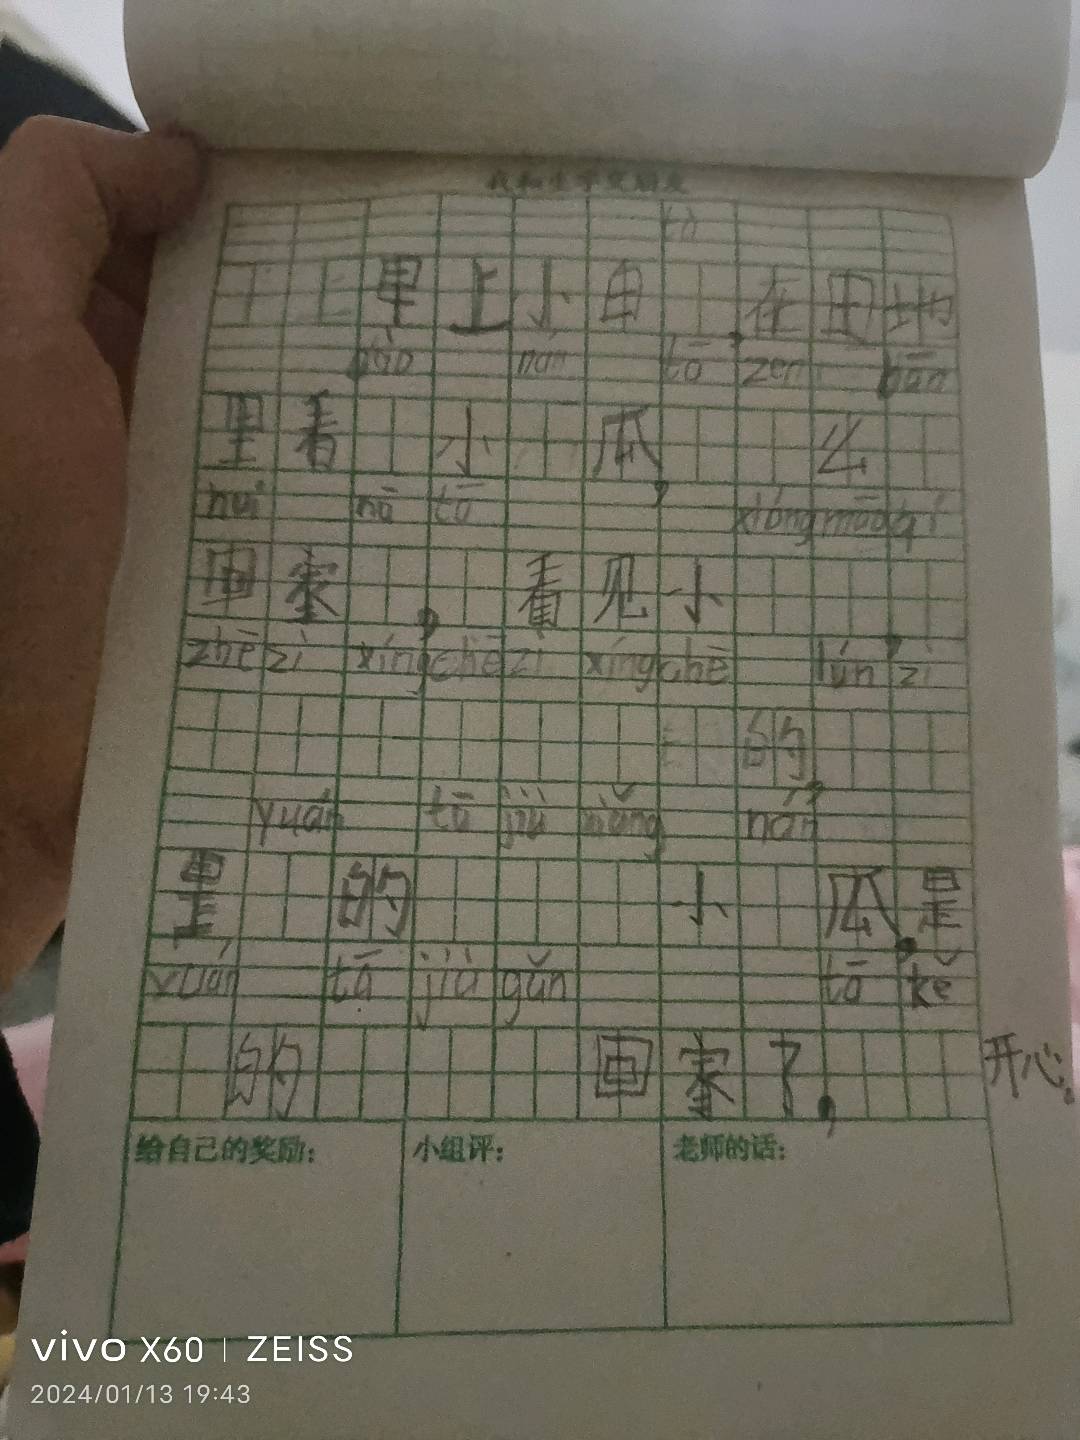 早上小由 在田地
nán tō zen bān
里看 小 瓜 么
huí nā tā xióng māo qí
回家 , 看见小
zhē zi xíng chē zi xíng chē lún zi
的,
yuán tū jiù nán
里 的 小 瓜,是
yuán tā jiù gǔn tō kě
的 回家了, 开心。
给自己的奖励: 小组评: 老师的话:
vivo X60 | ZEISS
2024/01/13 19:43